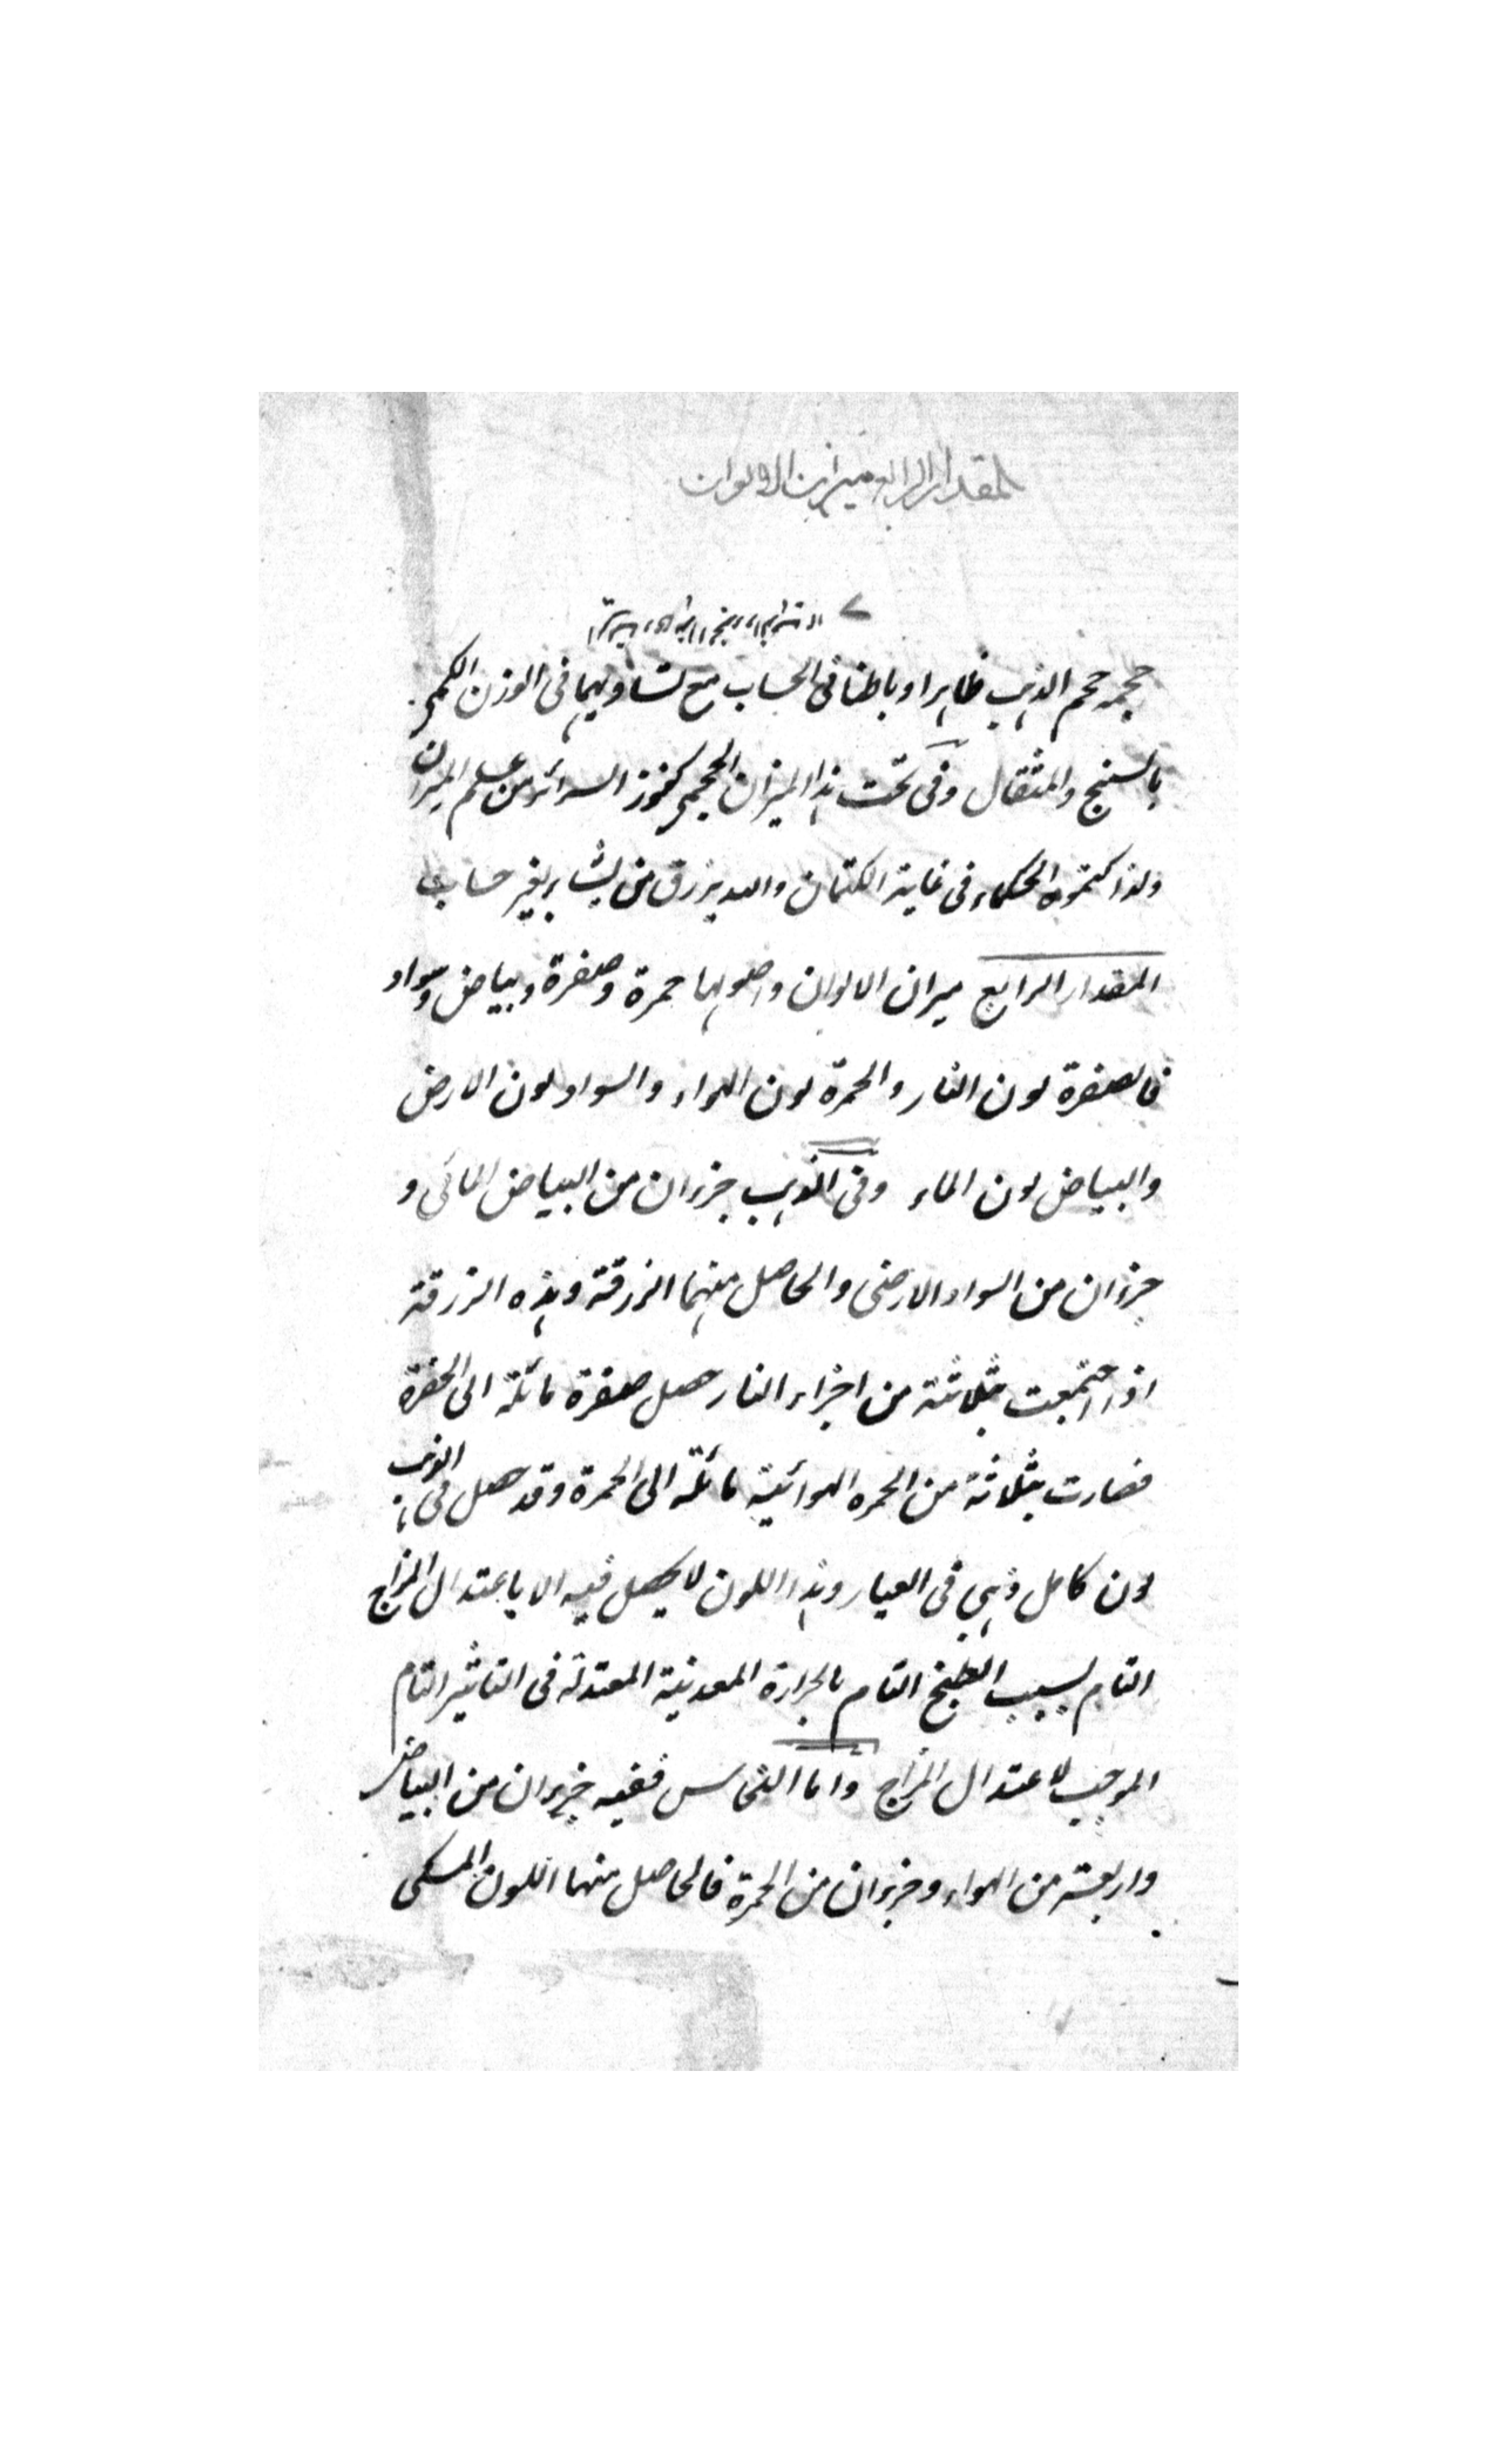 المقدار الرابع ميزان الالوان
حجمه حجم الذهب ظاهرا وباطنا فى الحساب مع تساويهما فى الوزن الكمى
بالسنج والمثقال وفى تحت هذا الميزان الحجمى كنوز السرائر من علم الميزان
ولذا كتموه الحكماء فى غاية الكتمان والله يرزق من يشاء بغير حساب
المقدار الرابع ميزان الالوان واصولها حمرة وصفرة وبياض وسواد
فالصفرة لون النار والحمرة لون الهواء والسواد لون الارض
والبياض لون الماء وفى الذهب جزءان من البياض المائى و
جزءان من السواد الارضى والحاصل منهما الزرقة وهذه الزرقة
اذا اجتمعت بثلاثة من اجزاء النار حصل صفرة مائلة الى الخضرة
فصارت بثلاثة من الحمره الهوائية مائلة الى الحمرة وقد حصل فى الذهب
لون كامل ذهبي فى العيار وهذا اللون لا يحصل فيه الا باعتدال المزاج
التام بسبب الطبخ التام بالحرارة المعدنية المعتدلة فى التاثير التام
الموجب لاعتدال المزاج واما النحاس ففيه جزءان من البياض
واربعة من الهواء وجزءان من الحمرة فالحاصل منهما اللون المسكى